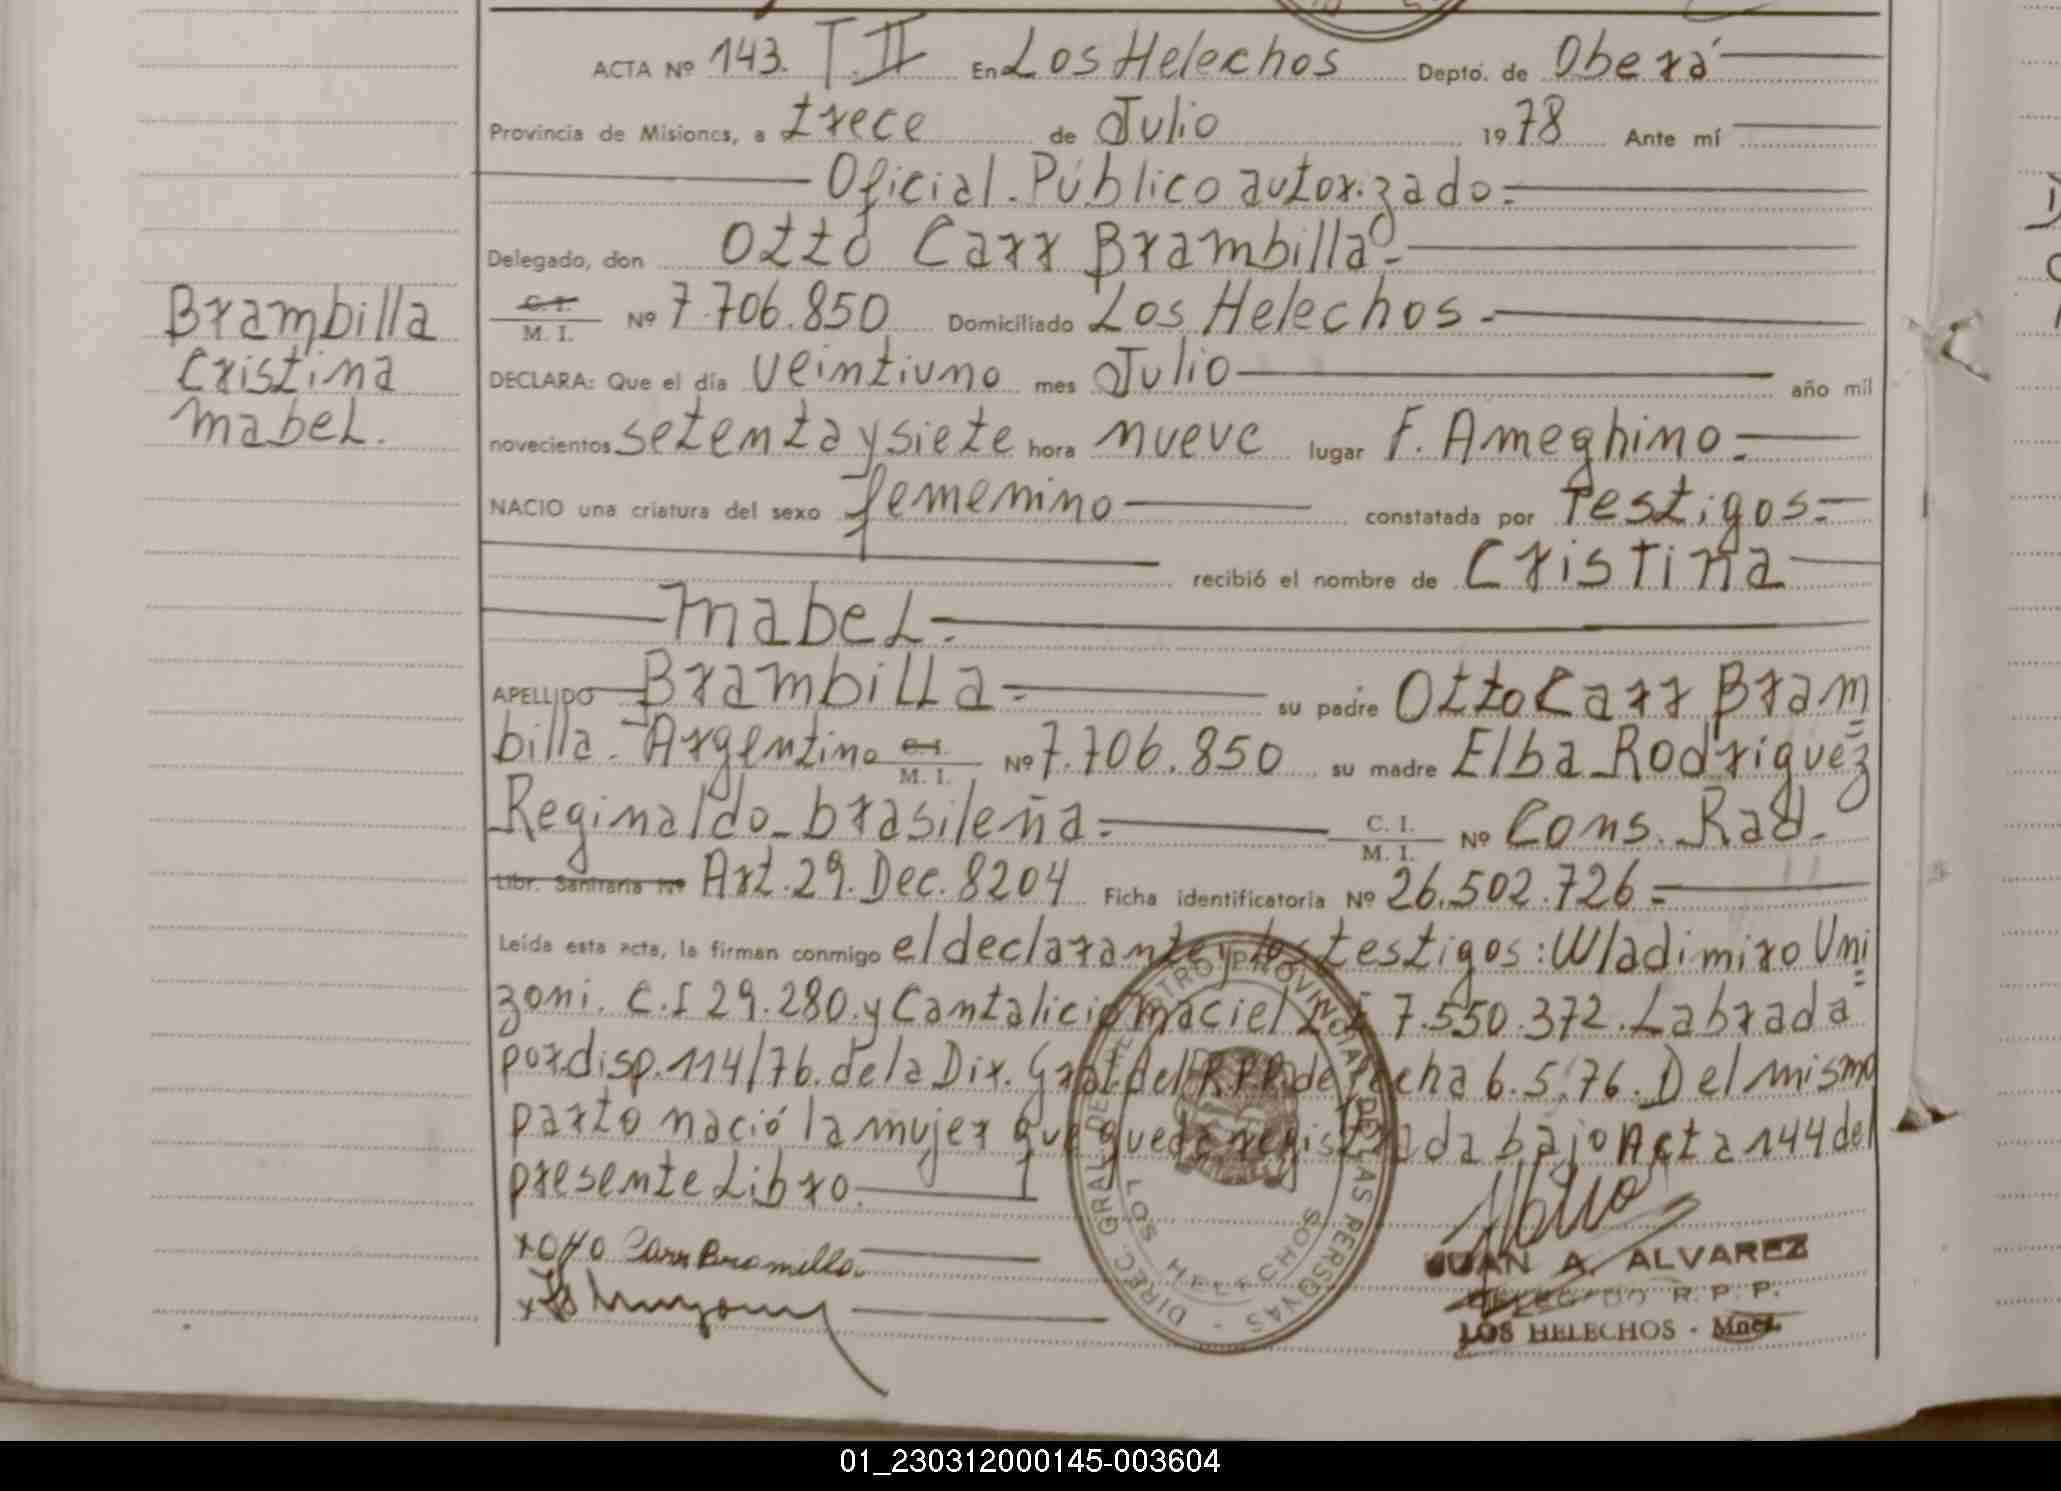 ACTA Nº 143. T. II En Los Helechos Depto. de Oberá
Provincia de Misiones, a trece de Julio 1978 Ante mí
Oficial Público autorizado.
Delegado, don Otto Carr Brambilla
C. I. / M. I. Nº 7.706.850 Domiciliado Los Helechos
DECLARA: Que el día veintiuno mes Julio año mil
novecientos setenta y siete hora nueve lugar F. Ameghino
NACIO una criatura del sexo femenino constatada por Testigos
recibió el nombre de Cristina
Mabel.
APELLIDO Brambilla su padre Otto Carr Bram=
billa. Argentino C. I. / M. I. Nº 7.706.850 su madre Elba Rodriguez
Reginaldo brasileña C. I. / M. I. Nº Cons. Rad.
Libr. Sanitaria Nº Art. 29. Dec. 8204 Ficha identificatoria Nº 26.502.726
Leída esta acta, la firman conmigo el declarante y los testigos: Wladimiro Uni=
zoni. C.I 29.280. y Cantalicio Maciel 7.550.372. Labrada
por disp. 114/76. de la Dir. Gral. del R.P.P. de fecha 6.5.76. Del mismo
parto nació la mujer que queda registrada bajo Acta 144 del
presente Libro.
Brambilla
Cristina
Mabel.
x Otto Carr Brambilla
DIREC. GRAL. DEL REGISTRO PROVINCIAL DE LAS PERSONAS
LOS HELECHOS
JUAN A. ALVAREZ
DELEGADO R. P. P.
LOS HELECHOS - Mnes.
01_230312000145-003604